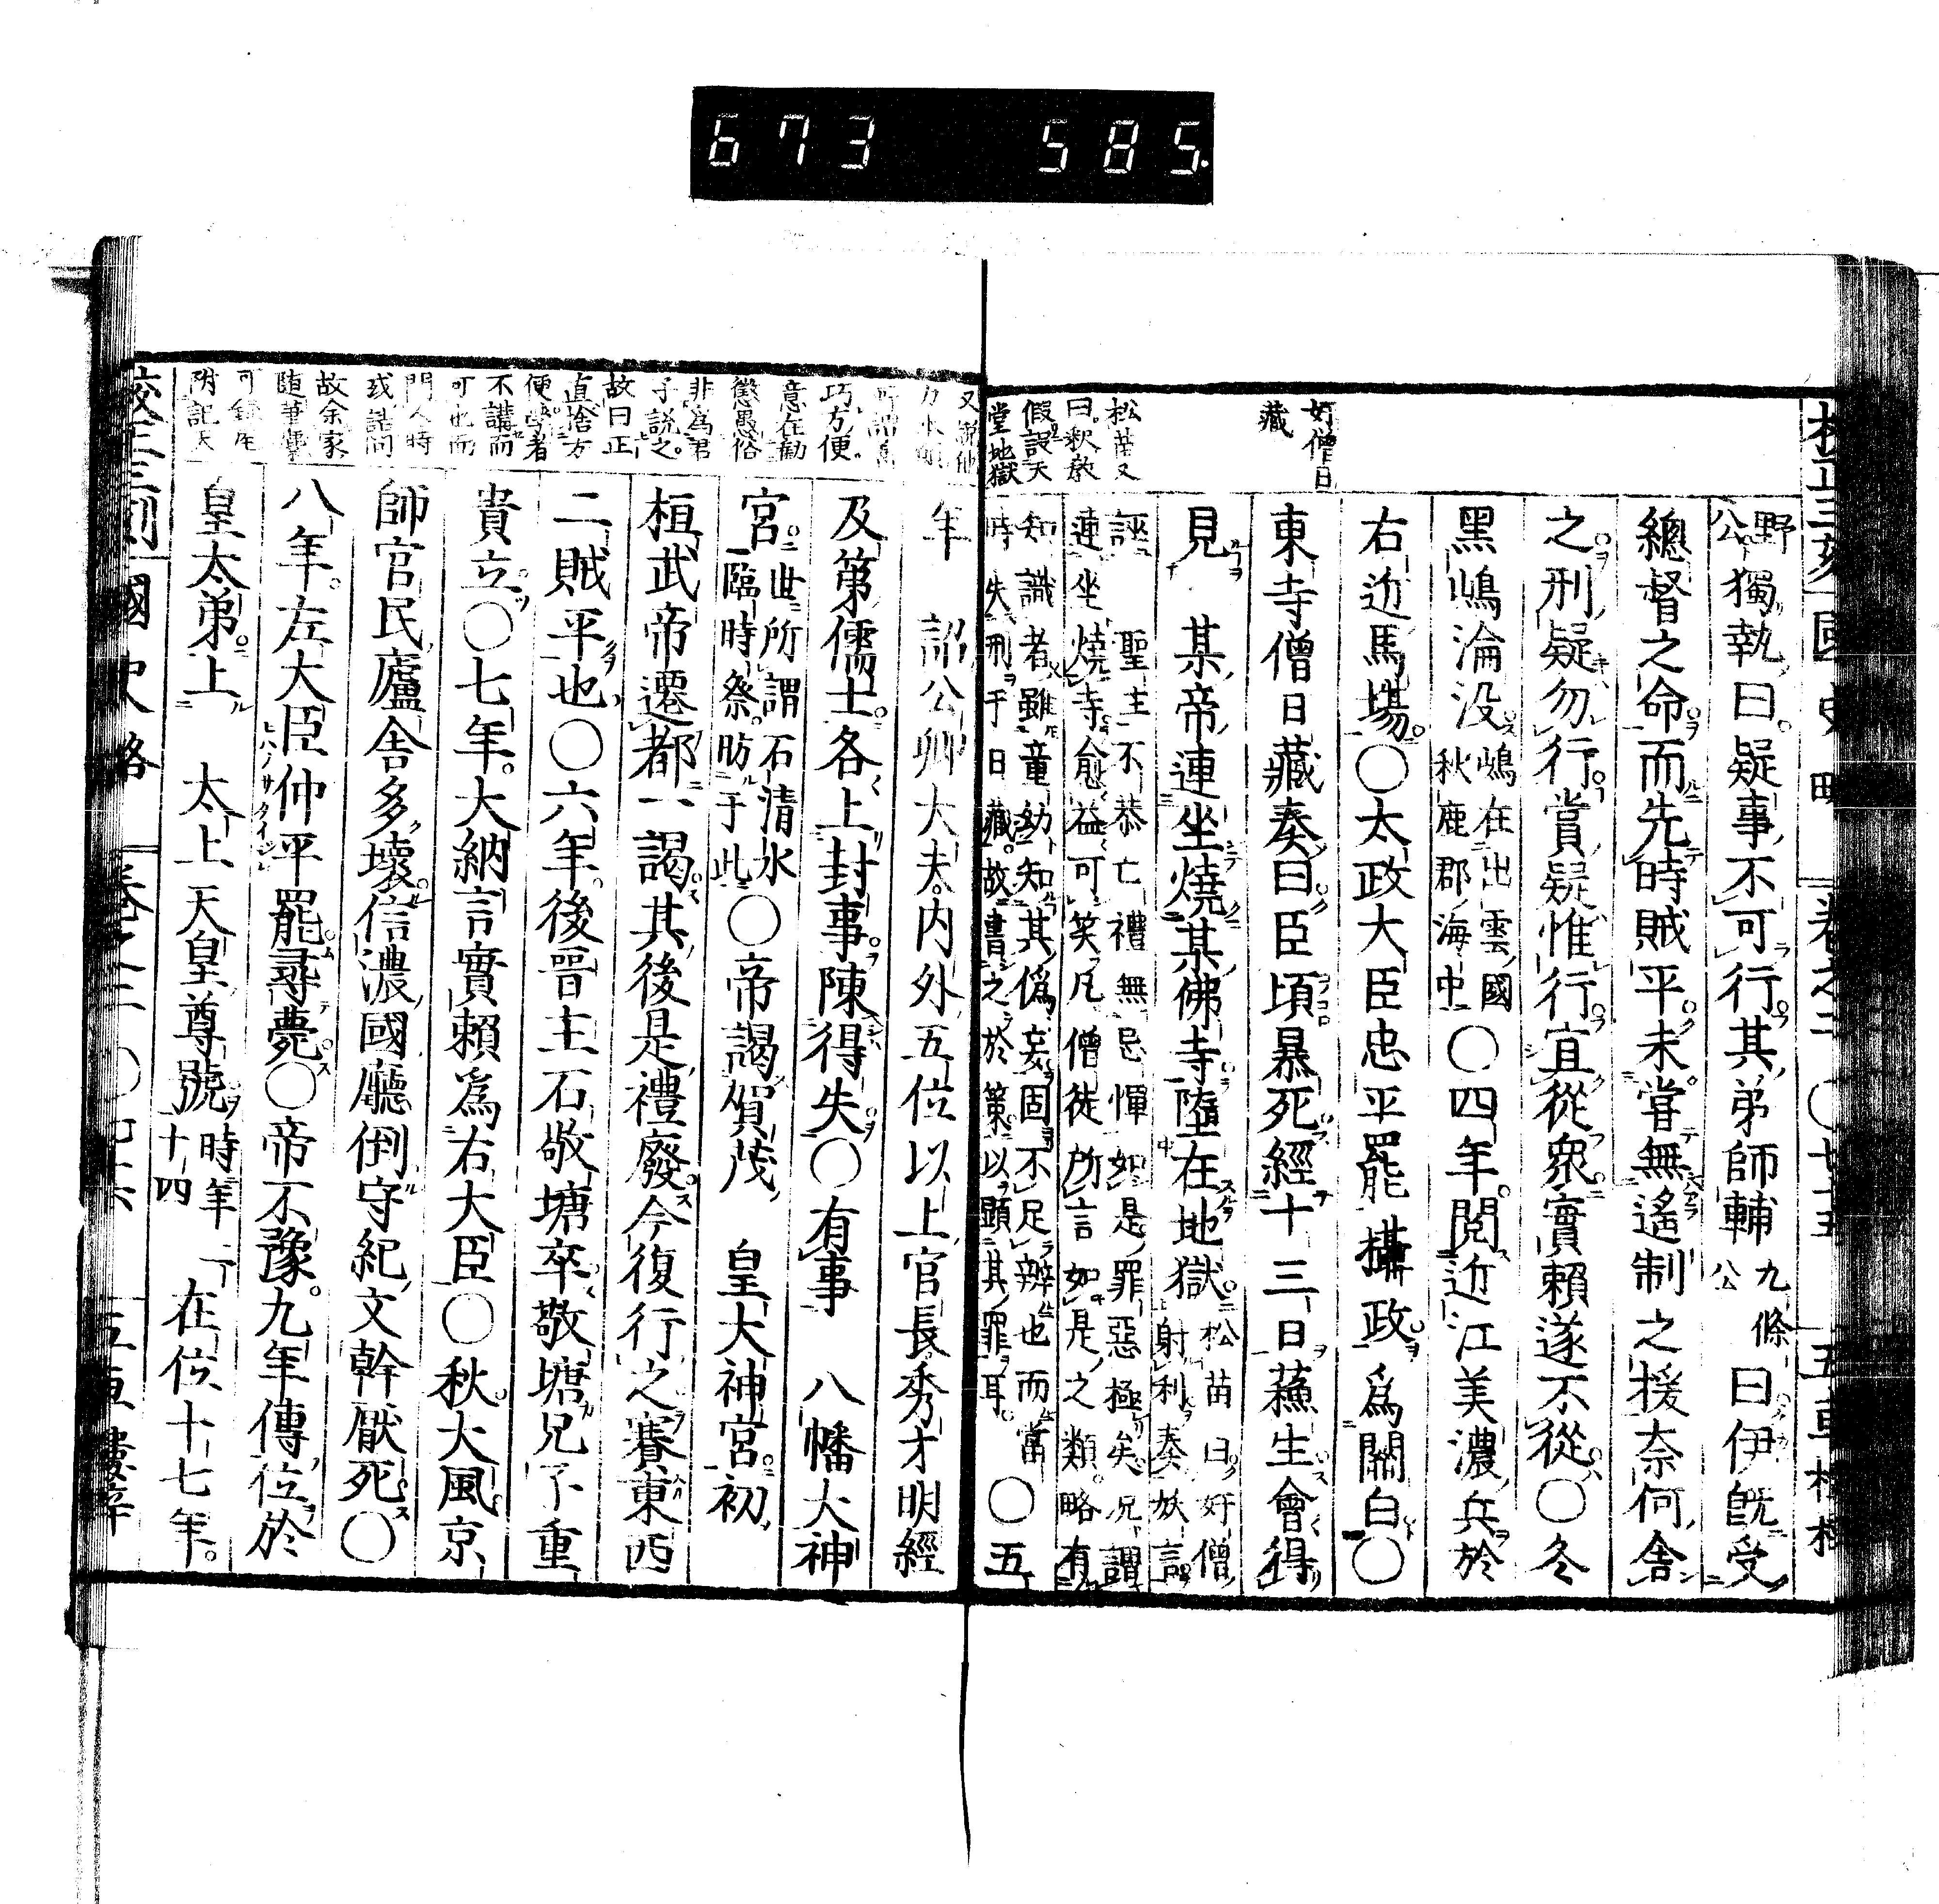 673 585.
校正三刻 國史略 卷之二 〇七十五 五車樓
奸僧日
藏
松苗又
曰釋教
假設天
堂地獄
野公獨執曰疑事不可行其弟師輔九條公曰伊既受
總督之命而先時賊平未嘗無遙制之援奈何舍
之刑疑勿行賞疑惟行宜從衆實賴遂不從〇冬
黑嶋淪没嶋在出雲國秋鹿郡海中〇四年閲近江美濃兵於
右近馬場〇太政大臣忠平罷攝政爲關白〇
東寺僧日藏奏曰臣頃暴死經十三日蘓生會得
見 某帝連坐燒某佛寺墮在地獄松苗曰奸僧射利奏妖言
誣 聖主不恭亡禮無忌憚如是罪惡極矣况謂
連坐燒寺愈益可笑凡僧徒所言如是之類略有
知識者雖童幼知其僞妄固不足辨也而當
時失刑于日藏故書之於策以顯其罪耳〇五
巧方便
意在勸
懲愚俗
非爲君
子説之
故曰正
直捨方
便學者
不講而
可也而
門人時
或詰問
故余家
隨筆
可
附記天
年 詔公卿大夫内外五位以上官長秀才明經
及第儒士各上封事陳得失〇有事 八幡大神
宮世所謂石清水臨時祭昉于此〇帝謁賀茂 皇大神宮初
桓武帝遷都一謁其後是禮廢今復行之賽東西
二賊平也〇六年後晉主石敬塘卒敬塘兄子重
貴立〇七年大納言實賴爲右大臣〇秋大風京
師官民廬舍多壞信濃國廳倒守紀文幹厭死〇
八年左大臣仲平罷尋薨〇帝不豫九年傳位於
皇太弟上 太上天皇尊號時年二十四 在位十七年
校正三刻 國史略 卷之二 〇七十六 五車樓梓